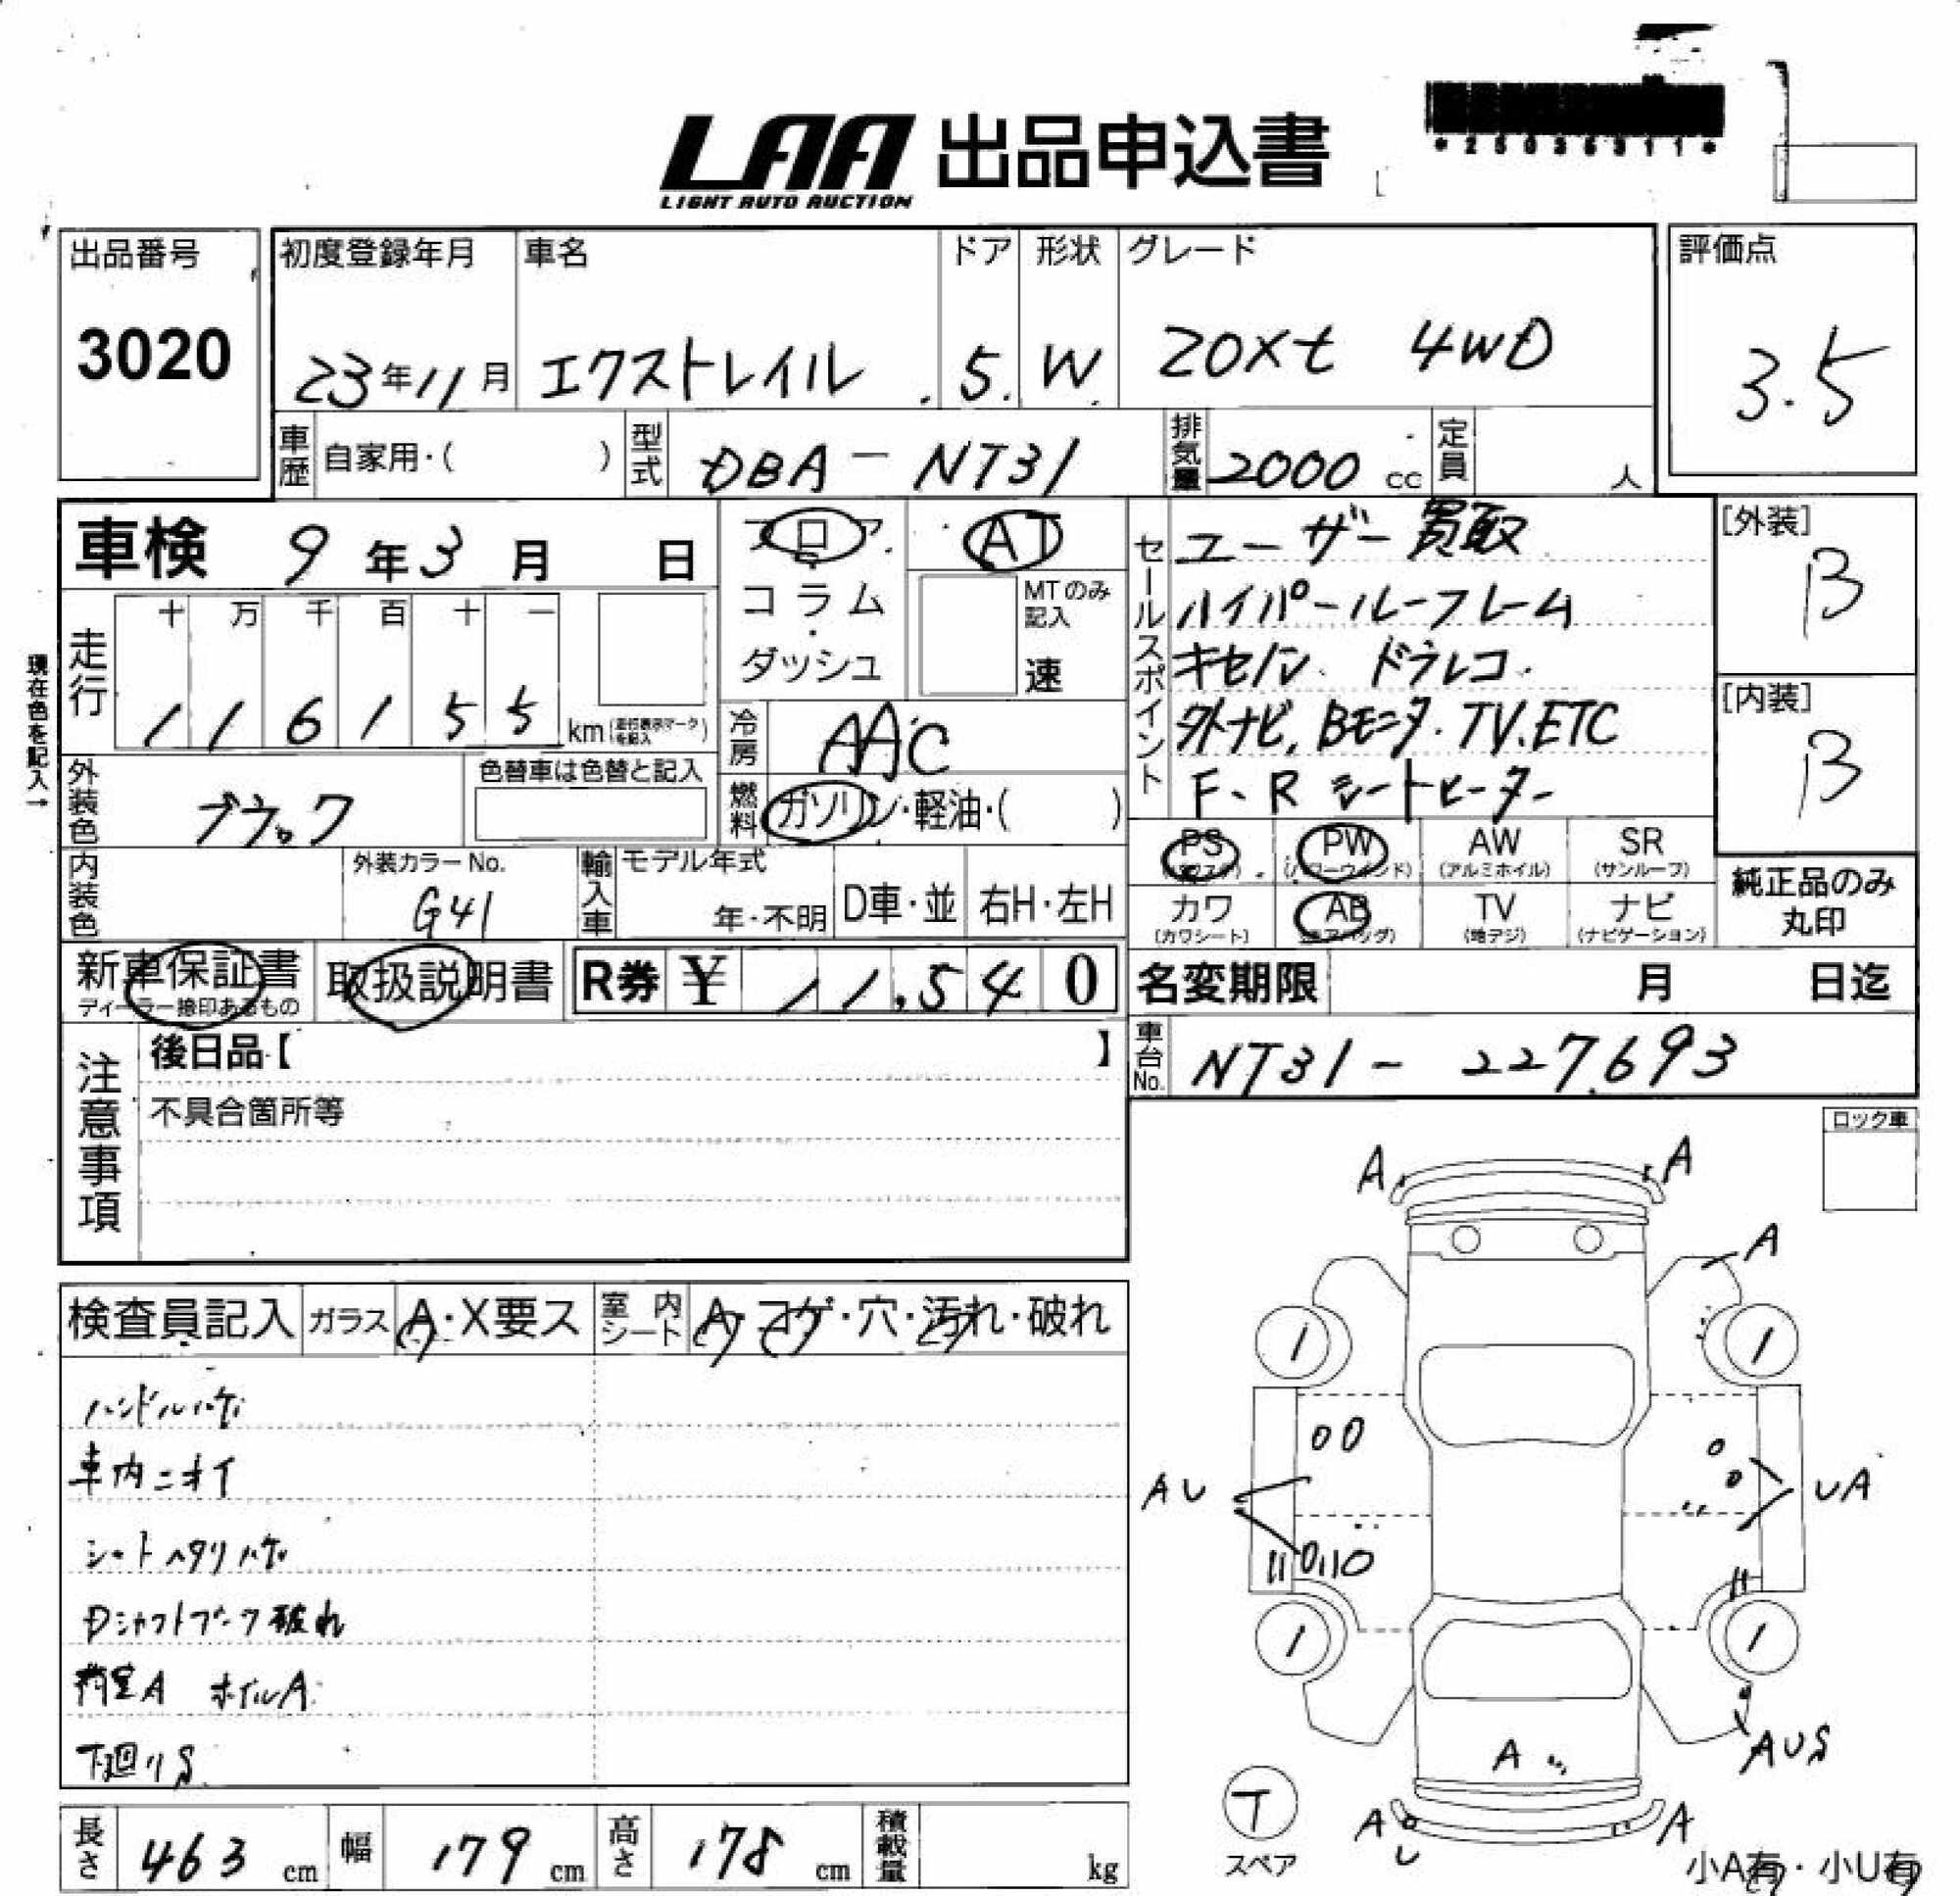 LAA 出品申込書
LIGHT AUTO AUCTION
*25036311*
出品番号
3020
初度登録年月
23年11月
車名
エクストレイル
ドア
5
形状
W
グレード
20Xt 4WD
評価点
3.5
車歴 自家用・( )
型式 DBA-NT31
排気量 2000 cc
定員 人
車検 9年3月 日
現在色を記入→
走行
十 万 千 百 十 一
1 1 6 1 5 5 km
フロア
コラム
・
ダッシュ
AT
MTのみ記入
速
冷房 AAC
燃料 ガソリン・軽油・( )
セールスポイント
ユーザー買取
ハイパールーフレール
キセノン ドラレコ
外ナビ, Bモニタ. TV.ETC
F、R シートヒーター
[外装]
B
[内装]
B
外装色 ブラック
色替車は色替と記入
内装色
外装カラーNo.
G41
輸入車
モデル年式
年・不明
D車・並
右H・左H
PS
PW (パワーウインド)
AW (アルミホイル)
SR (サンルーフ)
カワ (カワシート)
AB (エアバッグ)
TV (地デジ)
ナビ (ナビゲーション)
純正品のみ
丸印
新車保証書
ディーラー捺印あるもの
取扱説明書
R券 ¥ 11,540
名変期限 月 日迄
車台No. NT31-227693
注意事項
後日品【 】
不具合箇所等
ロック車
検査員記入
ガラス A・X要ス
室内シート A・コゲ・穴・汚れ・破れ
ハンドルハゲ
車内ニオイ
シートヘタリハゲ
Dシャフトブーツ破れ
荷室A ホイルA
下廻りS
A A
A
AU
UA
AUS
A
A A
U
T
スペア
小A有・小U有
長さ 463 cm
幅 179 cm
高さ 178 cm
積載量 kg